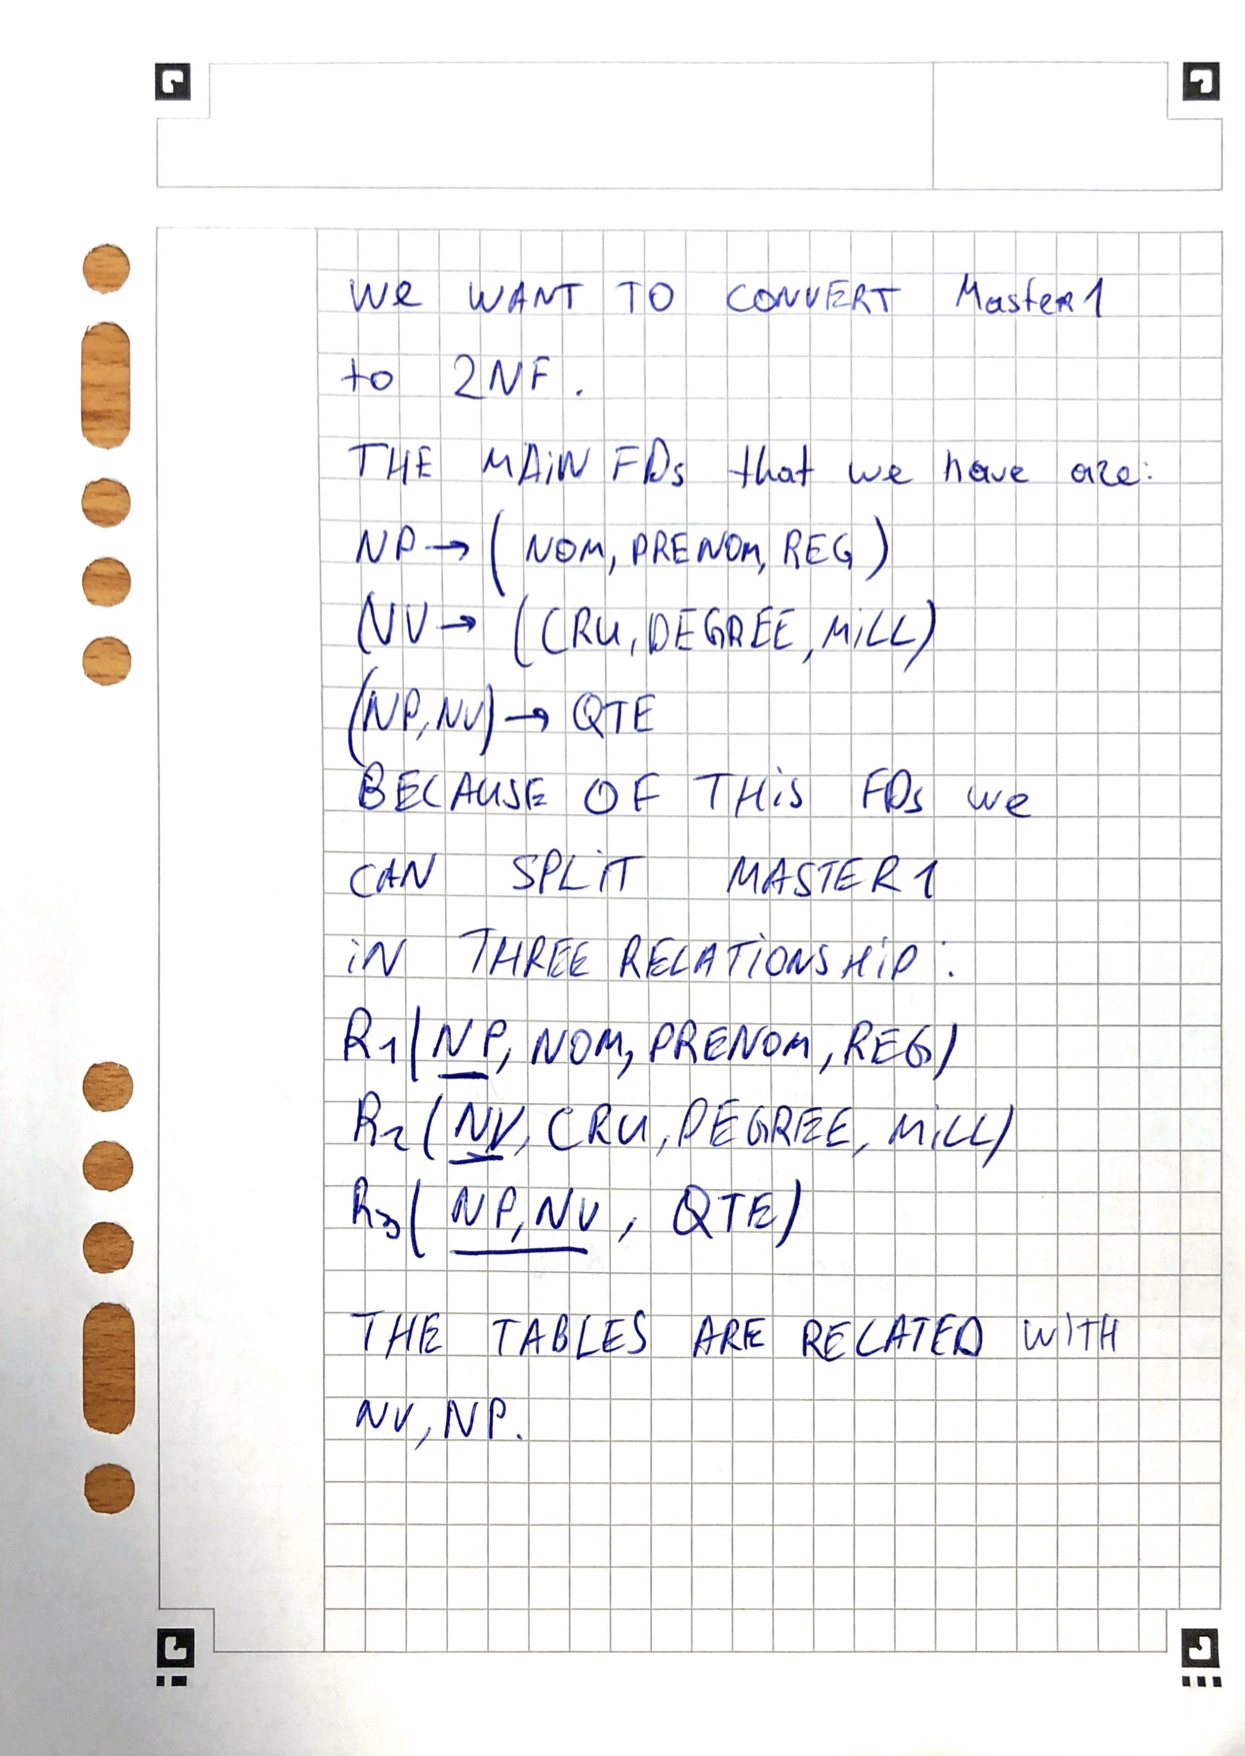 We WANT TO CONVERT Master1
to 2NF.
THE MAiN FDs that we have are:
NP → ( NOM, PRENOM, REG )
NV → (CRU, DEGREE, MiLL)
(NP, NV) → QTE
BECAUSE OF THiS FDs we
CAN SPLiT MASTER1
iN THREE RELATiONSHiP :
R1( NP, NOM, PRENOM, REG)
R2 ( NV, CRU, DEGREE, MiLL)
R3( NP, NV , QTE)
THE TABLES ARE RELATED WITH
NV, NP.